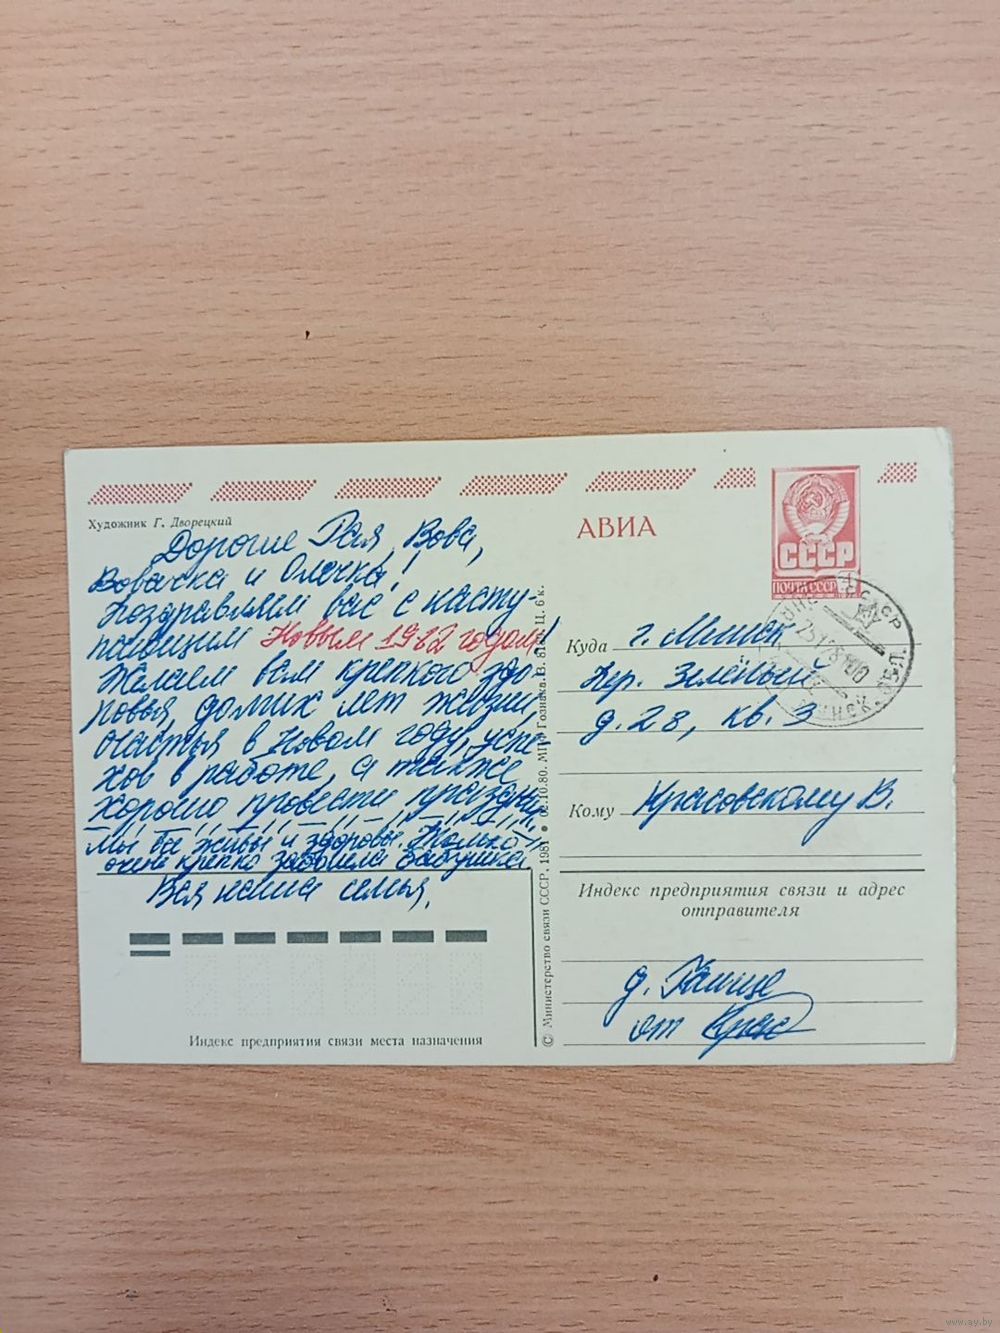 Художник Г. Дворецкий
Дорогие Рая, Вова,
Вовачка и Олечка!
Поздравляем вас с насту-
пающим Новым 1982 годом!
Желаем всем крепкого здо-
ровья, долгих лет жизни,
счастья в Новом году, успе-
хов в работе, а также
хорошо провести праздник.
Мы все живы и здоровы. Только
очень крепко заболела бабушка
Вся наша семья.
Индекс предприятия связи места назначения
© Министерство связи СССР, 1981 • 02.10.80. МПФ Гознака. Ц. 6 к.
АВИА
СССР
ПОЧТА СССР
Куда г. Минск
пер. Зелёный
д. 28, кв. 3
Кому Красовскому В.
Индекс предприятия связи и адрес
отправителя
от Крас
www.ay.by